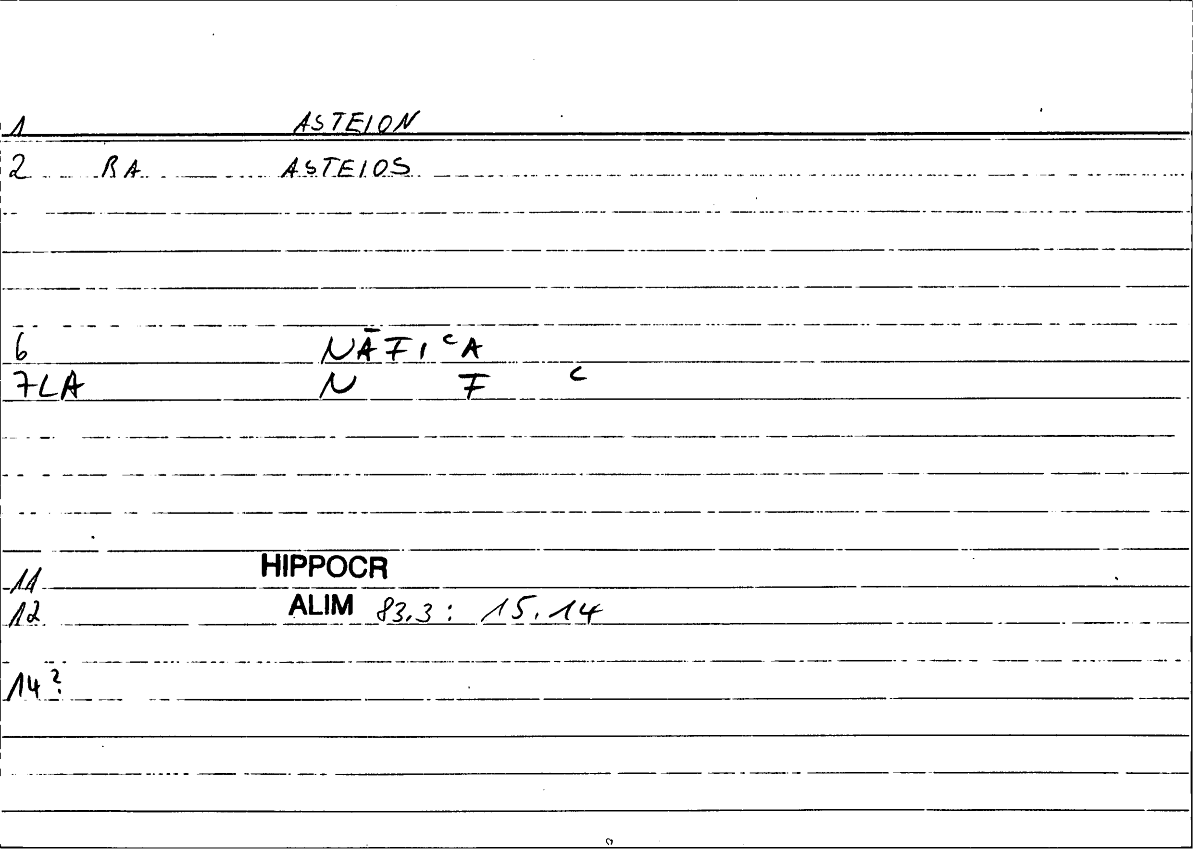 1 ASTEION
2 BA ASTEIOS
6 NĀFIᶜA
7LA N F ᶜ
11 HIPPOCR
12 ALIM 83.3: 15.14
14?